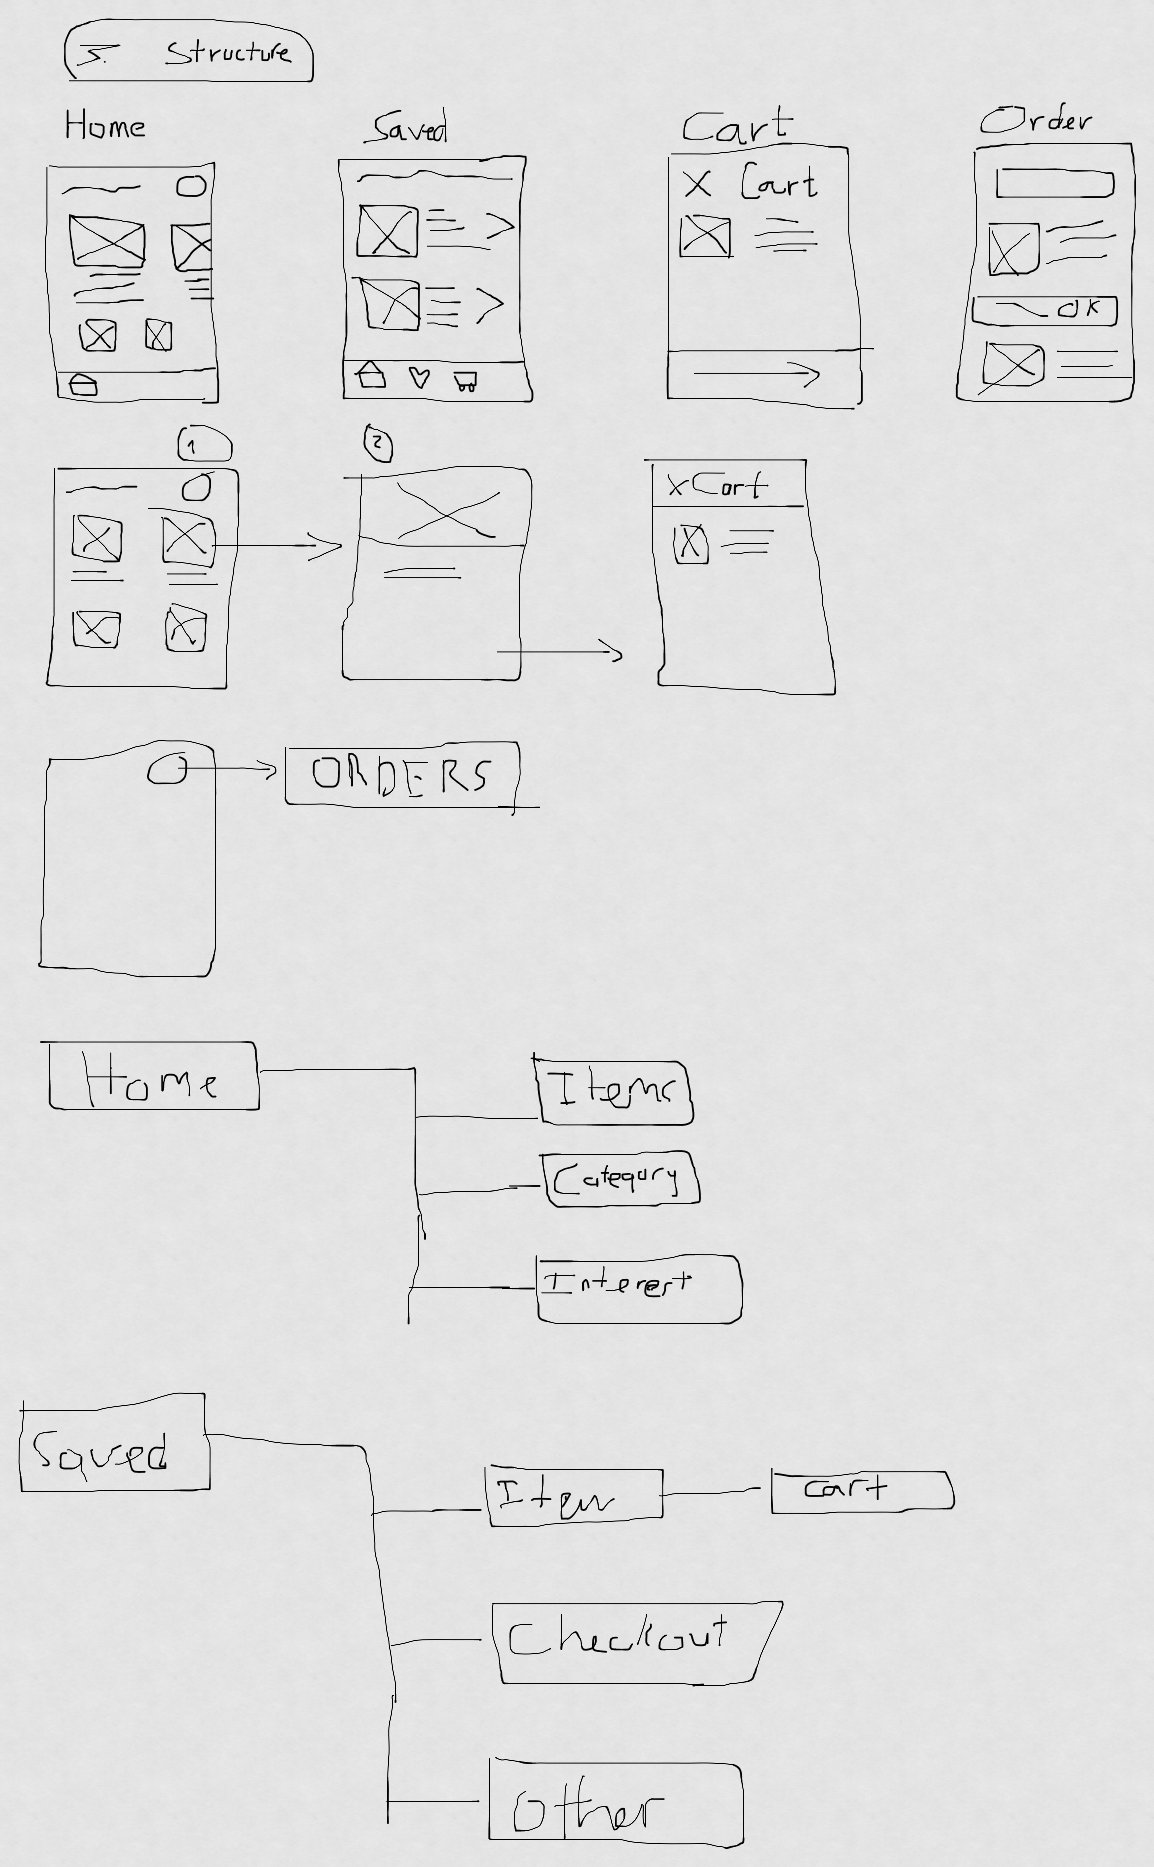 5. Structure
Home
Saved
Cart
Order
X Cart
OK
1
2
x Cart
ORDERS
Home
Items
Category
Interest
Saved
Item
Cart
Checkout
Other